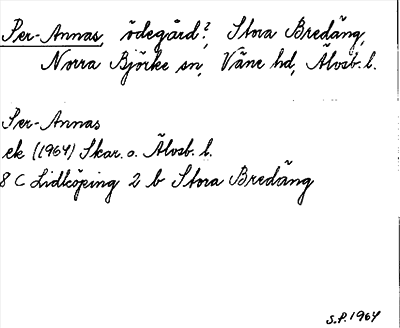 Per-Annas, ödegård?, Stora Bredäng,
Norra Björke sn, Väne hd, Älvsb. l.
Per-Annas
ek (1964) Skar. o. Älvsb. l.
8 C Lidköping 2 b Stora Bredäng
S.P. 1964